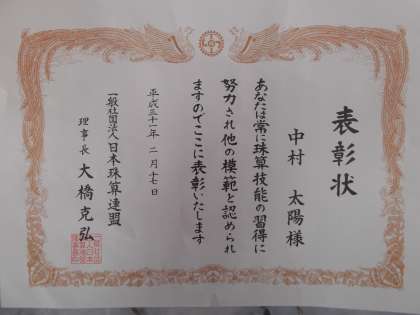 表彰状
中村 太陽様
あなたは常に珠算技能の習得に
努力され他の模範と認められ
ますのでここに表彰いたします
平成三十一年 二月十七日
一般社団法人日本珠算連盟
理事長 大橋克弘